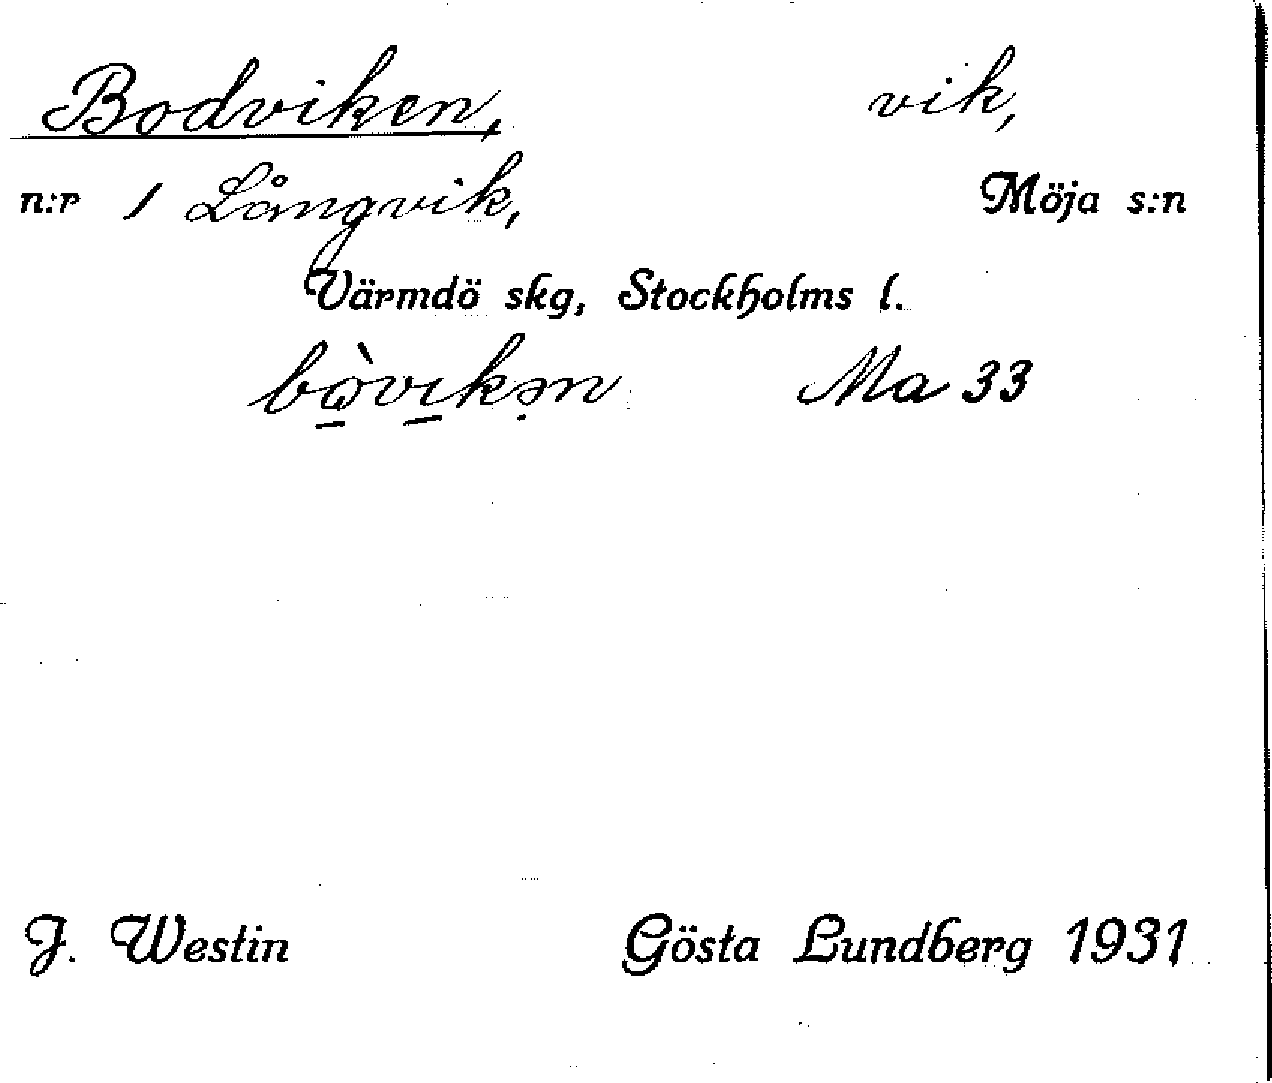 Bodviken, vik,
n:r 1 Långvik, Möja s:n
Värmdö skg, Stockholms l.
bὼ̠vi̠kə̣n Ma 33
J. Westin Gösta Lundberg 1931